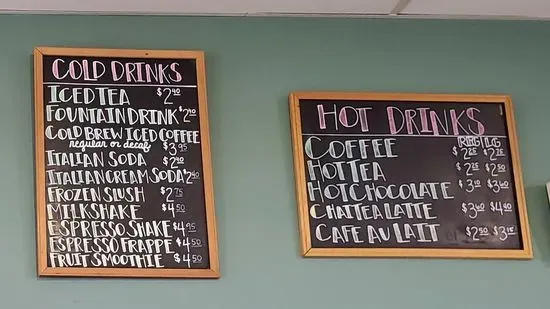 COLD DRINKS
ICED TEA $2.40
FOUNTAIN DRINK $2.40
COLD BREW ICED COFFEE
regular or decaf $3.95
ITALIAN SODA $2.40
ITALIAN CREAM SODA $2.40
FROZEN SLUSH $2.75
MILKSHAKE $4.50
ESPRESSO SHAKE $4.95
ESPRESSO FRAPPE $4.50
FRUIT SMOOTHIE $4.50
HOT DRINKS
REG LG
COFFEE $2.25 $2.75
HOT TEA $2.25 $2.50
HOT CHOCOLATE $3.10 $3.60
CHAI TEA LATTE $3.60 $4.90
CAFE AU LAIT $2.50 $3.15